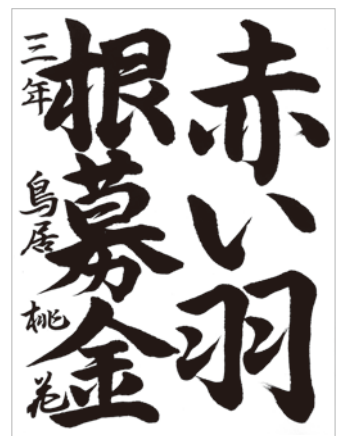 赤い羽
根募金
三年 鳥居 桃花